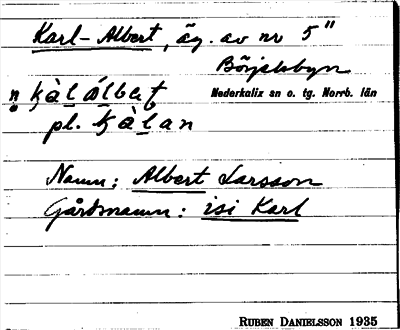 Karl-Albert, äg. av nr 5"
Börjelsbyn
Nederkalix sn o. tg. Norrb. län
n kàl álbert
pl. kàlan
Namn: Albert Larsson
Gårdsnamn: isi Karl
RUBEN DANIELSSON 1935